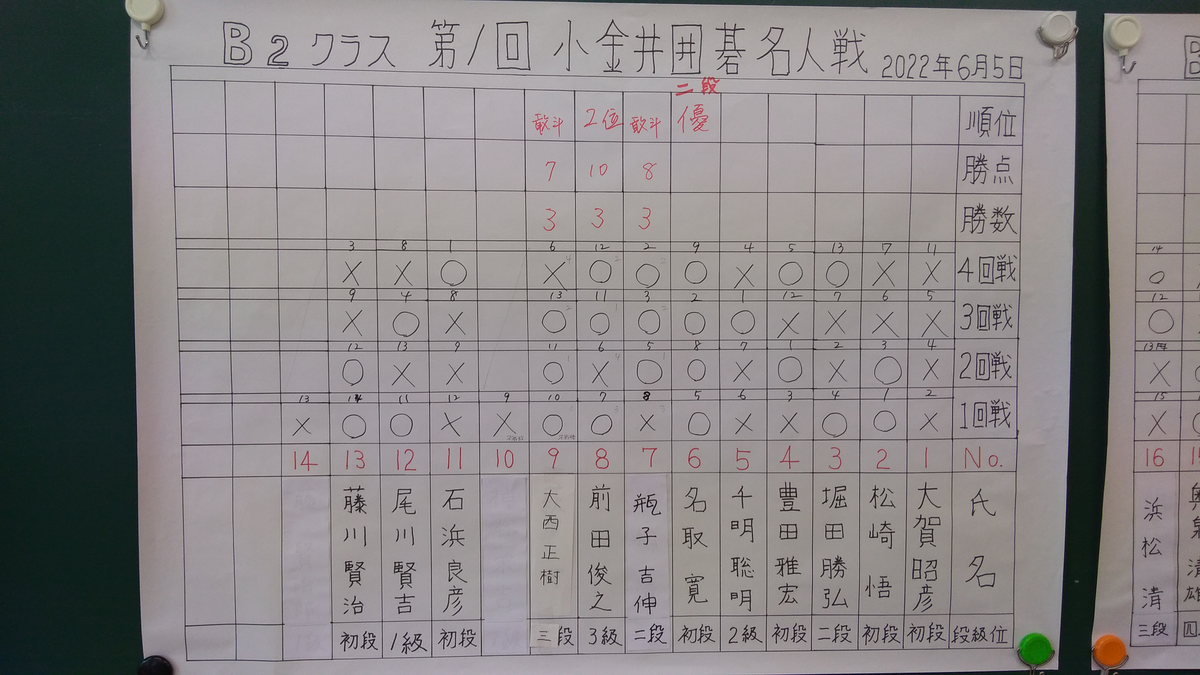 B2クラス 第1回 小金井囲碁名人戦 2022年6月5日
二段
敢斗 2位 敢斗 優 順位
7 10 8 勝点
3 3 3 勝数
3 8 1 6 12 2 9 4 5 13 7 11
× × ○ × ○ ○ ○ × ○ ○ × × 4回戦
9 4 8 13 11 3 2 1 12 7 6 5
× ○ × ○ ○ ○ ○ ○ × × × × 3回戦
12 13 9 11 6 5 8 7 1 2 3 4
○ × × ○ × ○ ○ × ○ × ○ × 2回戦
13 14 11 12 9 10 7 8 5 6 3 4 1 2
× ○ ○ × × ○ ○ × ○ × × ○ ○ × 1回戦
14 13 12 11 10 9 8 7 6 5 4 3 2 1 No.
藤川賢治 尾川賢吉 石浜良彦 大西正樹 前田俊之 瓶子吉伸 名取寛 千明聡明 豊田雅宏 堀田勝弘 松崎悟 大賀昭彦 氏名
初段 1級 初段 三段 3級 二段 初段 2級 初段 二段 初段 初段 段級位
14
○
12
○
×
15
×
16
浜松清
三段